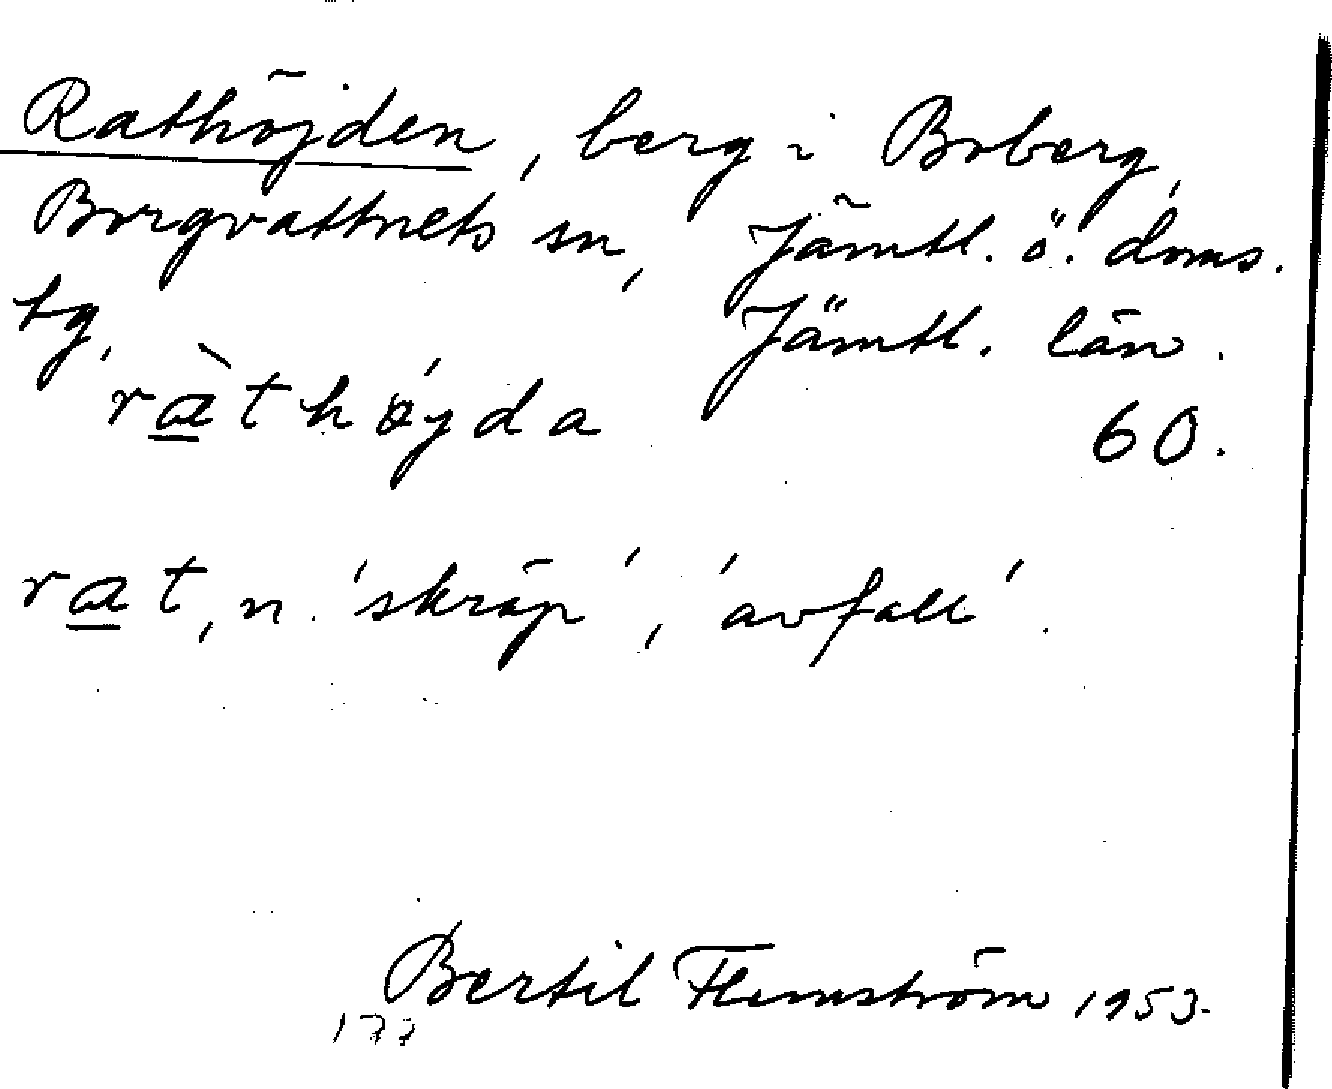 Rathöjden, berg i Boberg,
Borgvattnets sn, Jämtl. ö. doms.
tg, Jämtl. län.
rà̲thøyda 60.
ra̲t, n. 'skräp', 'avfall'.
Bertil Flemström 1953.
177